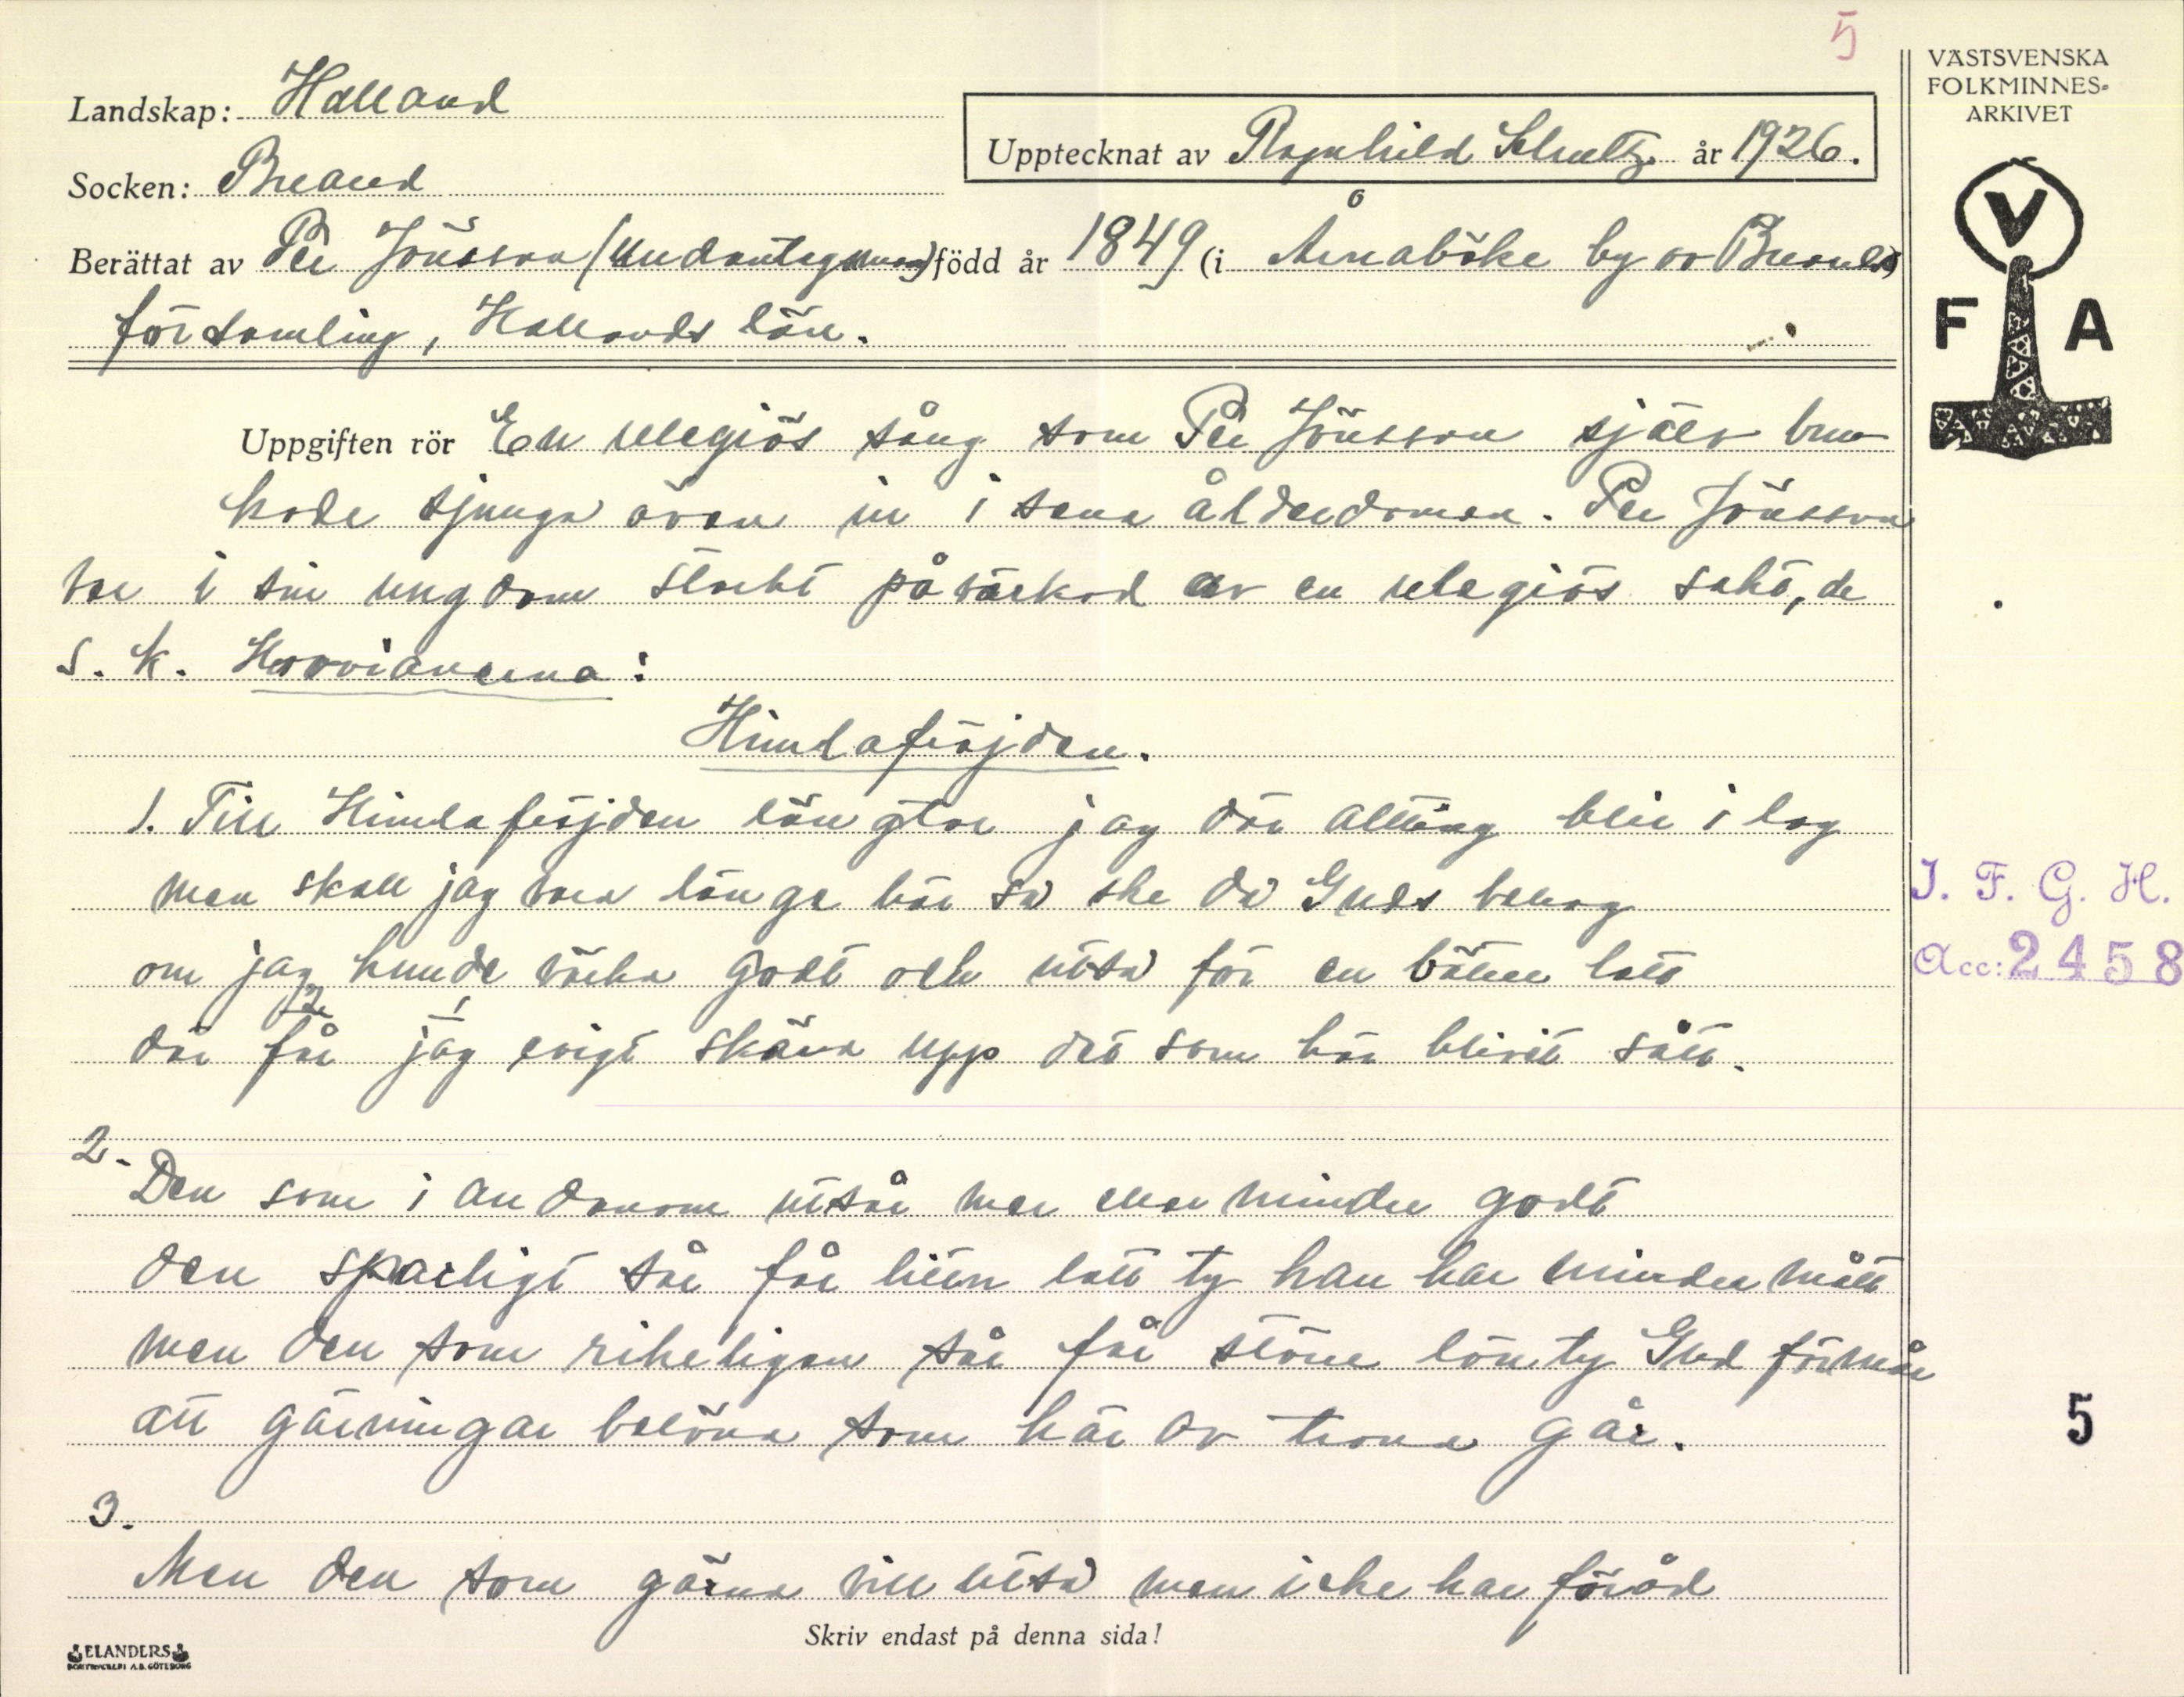 5
VÄSTSVENSKA
FOLKMINNES-
ARKIVET
Landskap: Halland
Upptecknat av Ragnhild Schultz år 1926.
Socken: Breared
Berättat av Per Jönsson (Undantagsman) född år 1849 (i Årnaböke by av Breareds
församling, Hallands län.
V
F A
Uppgiften rör En relegiös sång som Per Jönsson själv bru
kade sjunga även in i sena ålderdomen. Per Jönsson
var i sin ungdom starkt påvärkad av en relegiös sekt, de
s. k. Hoovianerna:
Himlafröjden.
1. Till Himlafröjden längtar jag där allting blir i lag
men skall jag vara länge här så ske då Guds behag
om jag kunde värka godt och utså för en bättre lott
2 1
där får jag evigt skära upp det som här blivit sått.
2.
Den som i andanom utsår mer eller mindre godt
den sparligt sår får liten lott ty han har mindre mått
men den som rikeligen sår får större lön ty Gud förmår
att gärningar belöna som här av trona går.
3.
Men den som gärna vill utså men icke har föråd
Skriv endast på denna sida!
ELANDERS
BOKTRYCKERI A.B. GÖTEBORG
I. F. G. H.
Acc: 2458
5